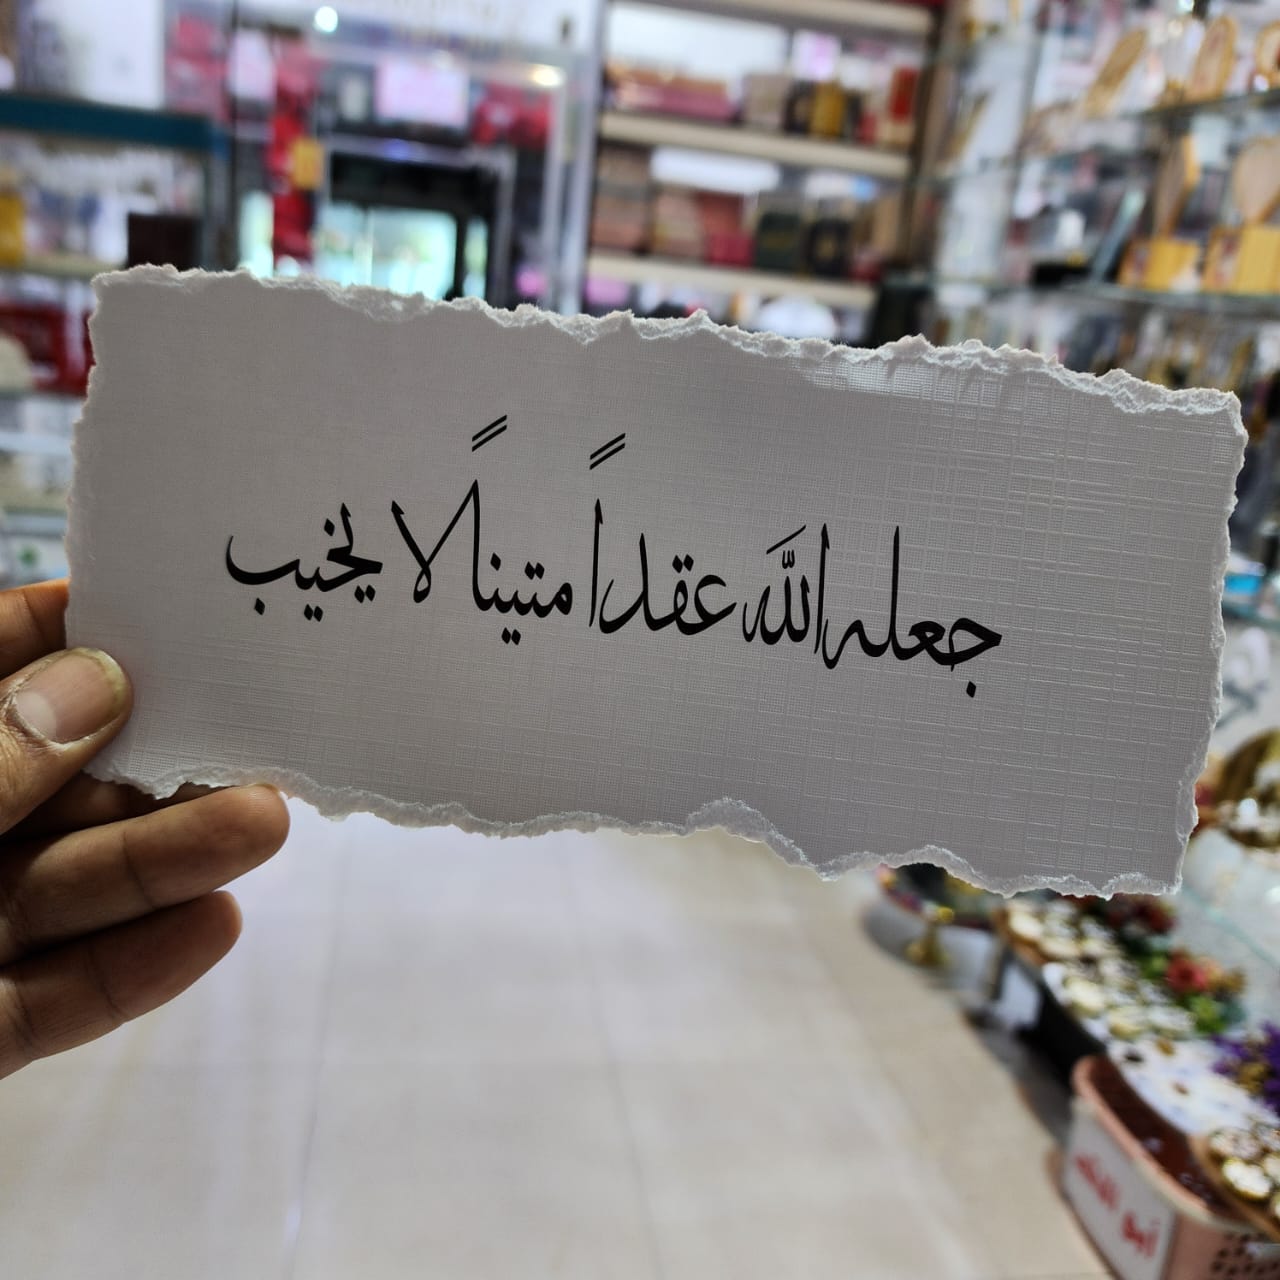 جعله الله عقداً متيناً لا يخيب